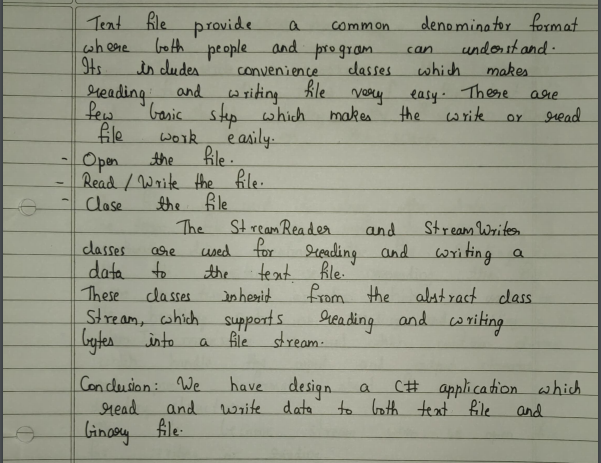 Text file provide a common denominator format
where both people and program can understand.
Its includes convenience classes which makes
reading and writing file very easy. There are
few basic step which makes the write or read
file work easily.
- Open the file.
- Read / Write the file.
- Close the file
The StreamReader and StreamWriter
classes are used for reading and writing a
data to the text file.
These classes inherit from the abstract class
Stream, which supports reading and writing
bytes into a file stream.
Conclusion: We have design a C# application which
read and write data to both text file and
binary file.